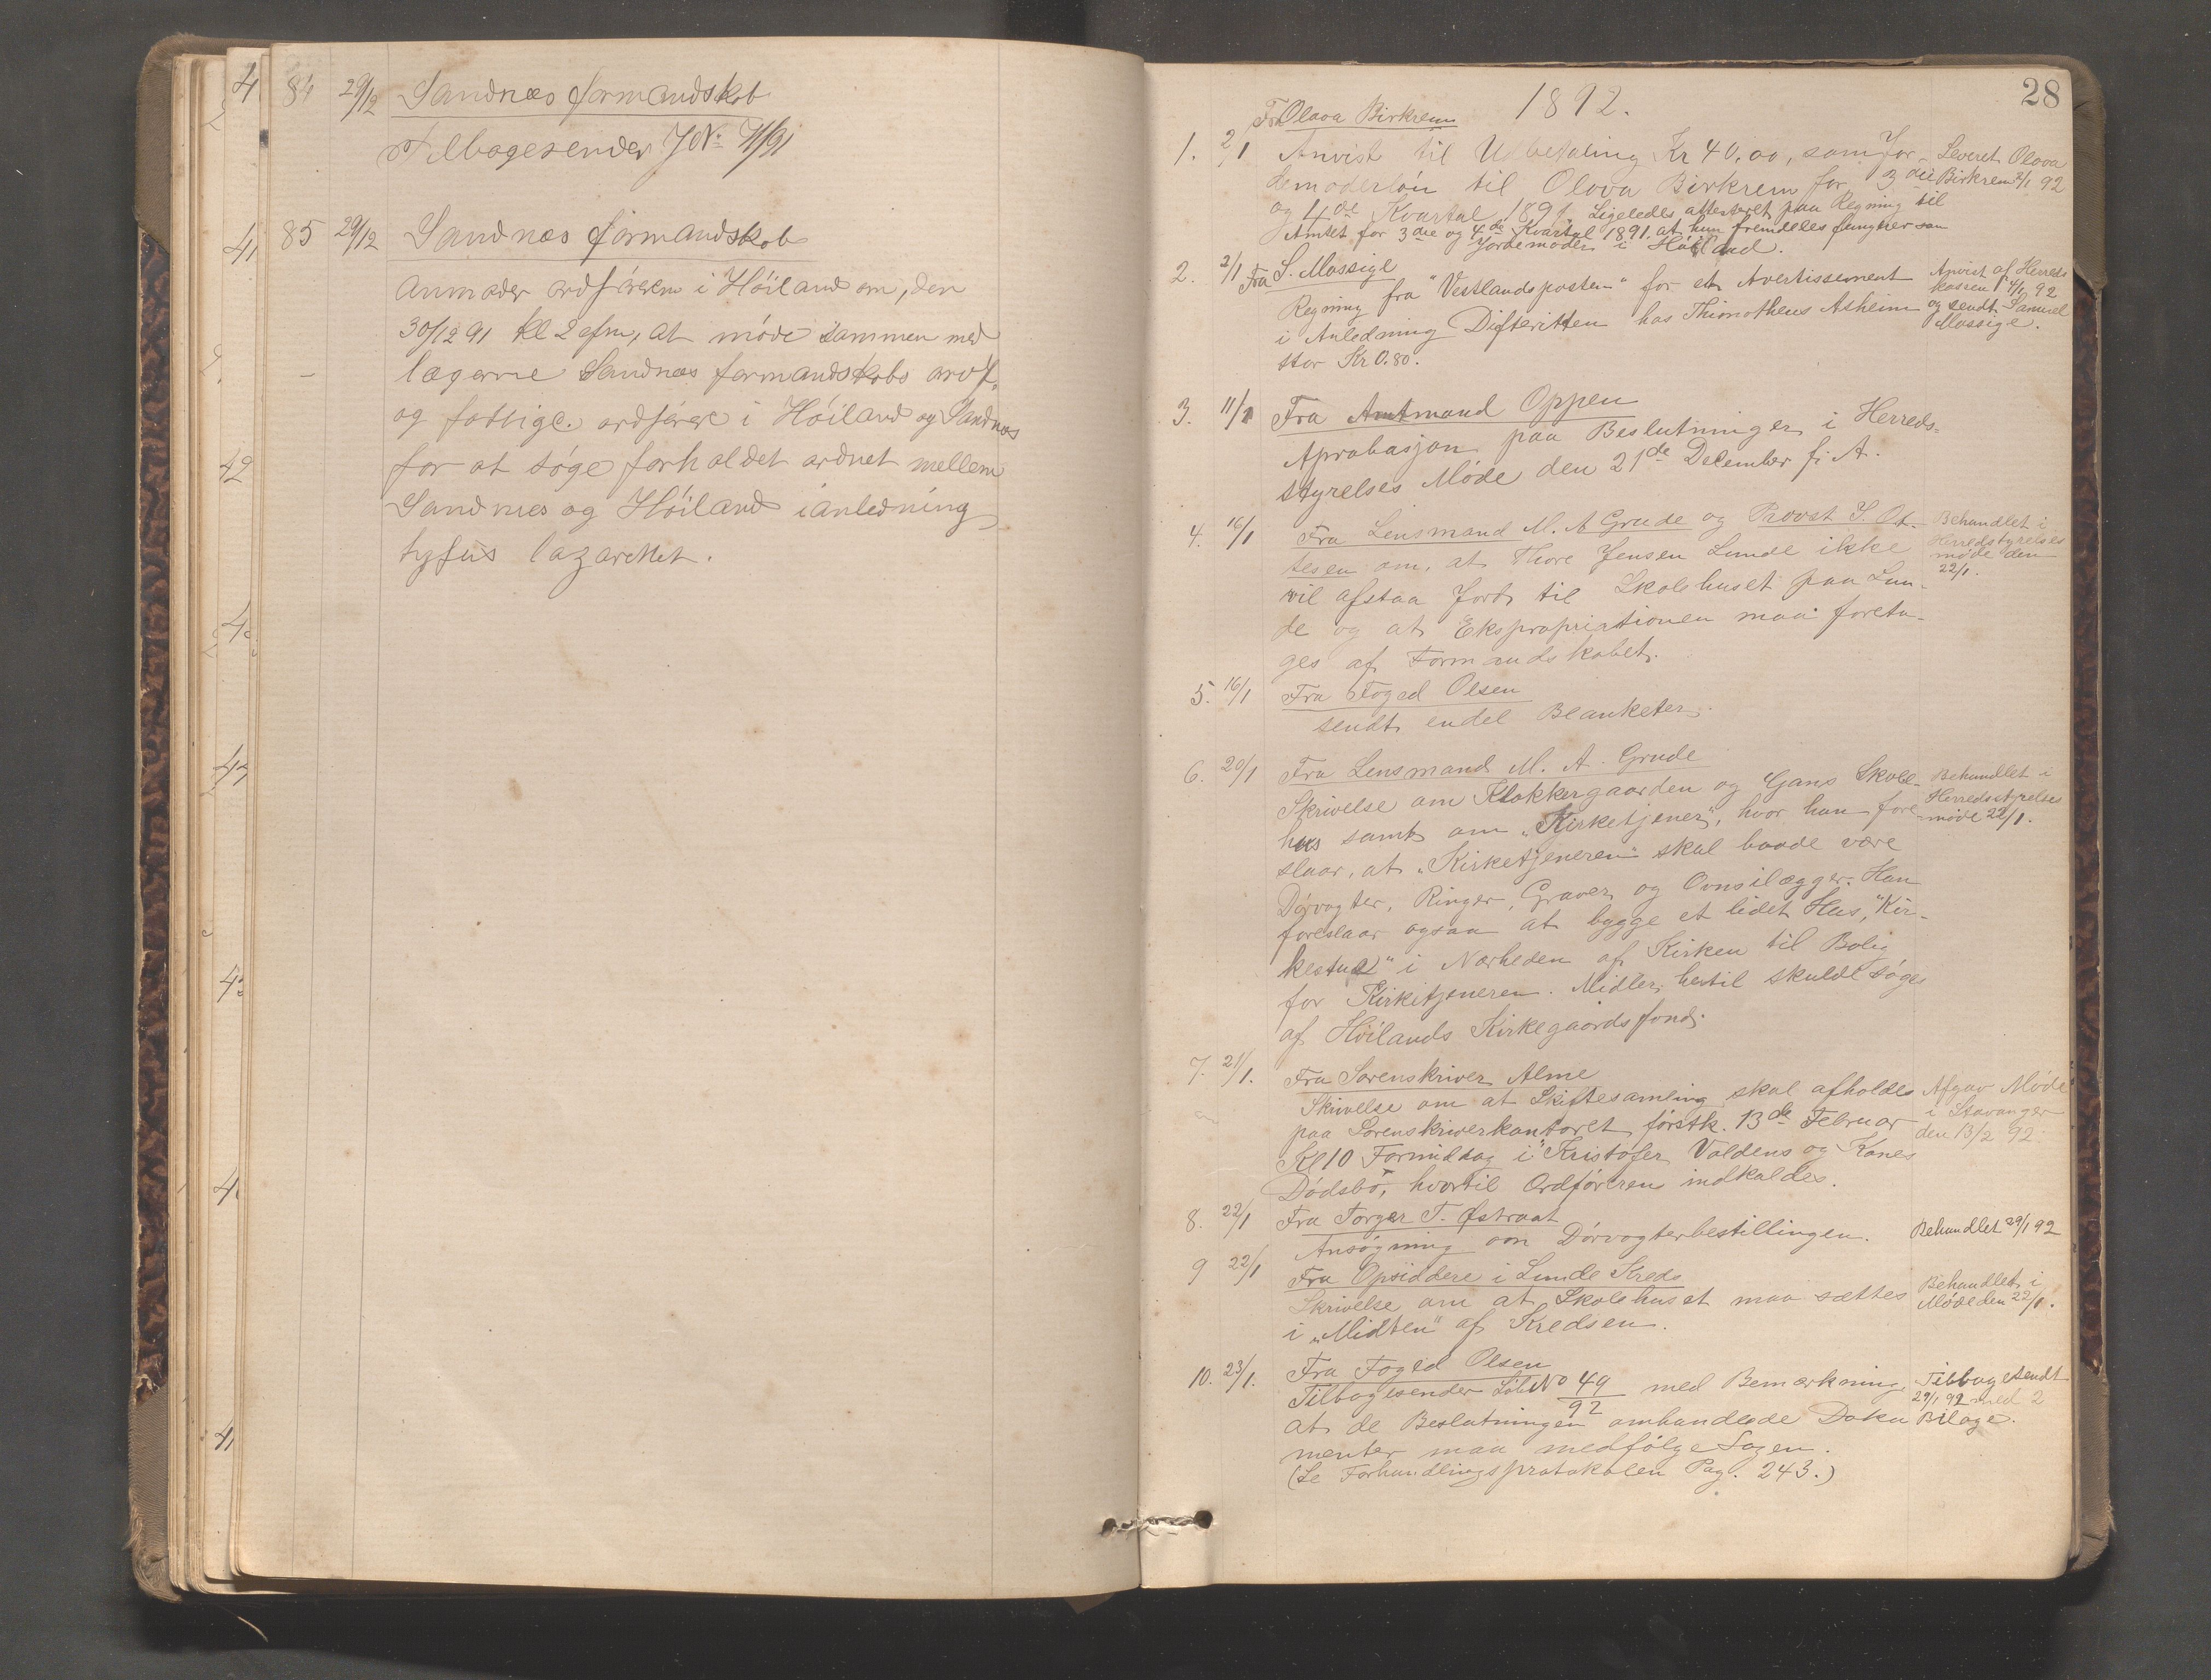 84 29/12 Sandnes formandskab
Tilbagesender J№ 71/91
85 29/12 Sandnes formandskab
Anmoder ordføreren i Höiland om, den
30/12 91 kl 2 efm, at møde sammen med
lægerne Sandnæs formandskabs ordf.
og fattigc. ordfører i Höiland og Sandnæs
for at søge forholdet ordnet mellem
Sandnes og Höiland i anledning
tyfus lazarettet.
28
1892.
Fra Olava Birkrem
1. 2/1 Anvist til Udbetaling Kr 40,00, som Jor- Leveret Olava
demoderlön til Olava Birkrem for 3die Birkrem 2/1 92
og 4de Kvartal 1891. Ligeledes attesteret paa Regning til
Amtet for 3die og 4de Kvartal 1891, at hun fremdeles fungerer som
Jordemoder i Höiland.
2. 2/1 Fra S. Mossige
Regning fra "Vestlandsposten" for et Avertissement Anvist af Herreds
i Anledning Difteritten hos Thimotheus Asheim kassen 4/1 92
stor Kr 0.80. og sendt Samuel
Mossige.
3. 11/1 Fra Amtmand Oppen
Aprobasjon paa Beslutninger i Herreds-
styrelses Møde den 21de December f. A.
4. 16/1 Fra Lensmand M. A Grude og Provst S. Ot- Behandlet i
tesen om, at Thore Jensen Lunde ikke Herredstyrelses
vil afstaa Jord til Skolehuset paa Lun- møde den
de og at Ekspropriationen maa foreta- 22/1.
ges af Formandskabet.
5. 16/1 Fra Foged Olsen
sendt endel Blanketer.
6. 20/1 Fra Lensmand M. A. Grude
Skrivelse om Klokkergaarden og Gans Skole- Behandlet i
hus samt om "Kirketjener", hvor han fore- Herredsstyrelses
slaar, at "Kirketjeneren" skal baade være møde 22/1.
Dørvogter, Ringer, Graver og Ovnsilægger. Han
foreslaar ogsaa at bygge et lidet Hus, "Kir-
kestue" i Nærheden af Kirken til Bolig
for Kirkitjeneren. Midler hertil skulde søges
af Höilands Kirkegaardsfond.
7. 21/1. Fra Sorenskriver Alme
Skrivelse om at Skiftesamling skal afholdes Afgav Møde
paa Sorenskriverkontoret förstk. 13de Februar i Stavanger
Kl 10 Formiddag i Kristofer Valdens og Kones den 13/2 92.
Dödsbö, hvortil Ordföreren indkaldes.
8. 22/1 Fra Torger T. Østraat
Ansøgning om Dörvogterbestillingen. Behandlet 29/1 92
9 22/1 Fra Opsiddere i Lunde Kreds
Skrivelse om at Skolehuset maa sættes Behandlet i
i "Midten" af Kredsen. Møde den 22/1.
10. 23/1. Fra Foged Olsen
Tilbagesender Löb№ 49/92 med Bemærkning, Tilbagesendt
at de Beslutningen omhandlede Doku 29/1 92 med 2
menter maa medfölge Sagen. Bilage.
(Se Forhandlingsprotokolen Pag. 243.)